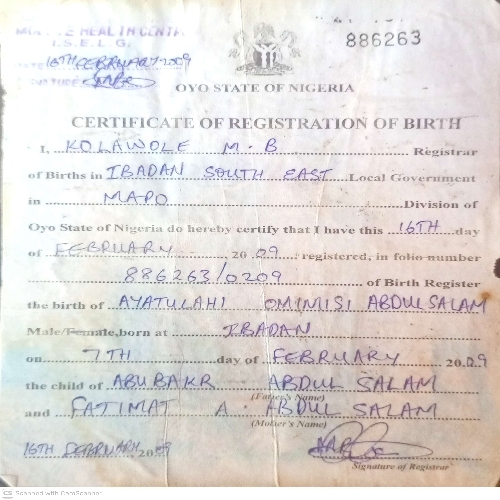 HEALTH CENTR
I.S.E.L.G.
16TH FEBRUARY 2009
886263
OYO STATE OF NIGERIA
CERTIFICATE OF REGISTRATION OF BIRTH
I, KOLAWOLE M. B Registrar
of Births in IBADAN SOUTH EAST Local Government
in MAPO Division of
Oyo State of Nigeria do hereby certify that I have this 16TH day
of FEBRUARY 2009 registered, in folio number
886263/0209 of Birth Register
the birth of AYATULAHI OMINISI ABDULSALAM
Male/Female, born at IBADAN
on 7TH day of FEBRUARY 2009
the child of ABUBAKR ABDUL SALAM
(Father's Name)
and FATIMAT A. ABDUL SALAM
(Mother's Name)
16TH FEBRUARY 2009
Signature of Registrar
CS Scanned with CamScanner